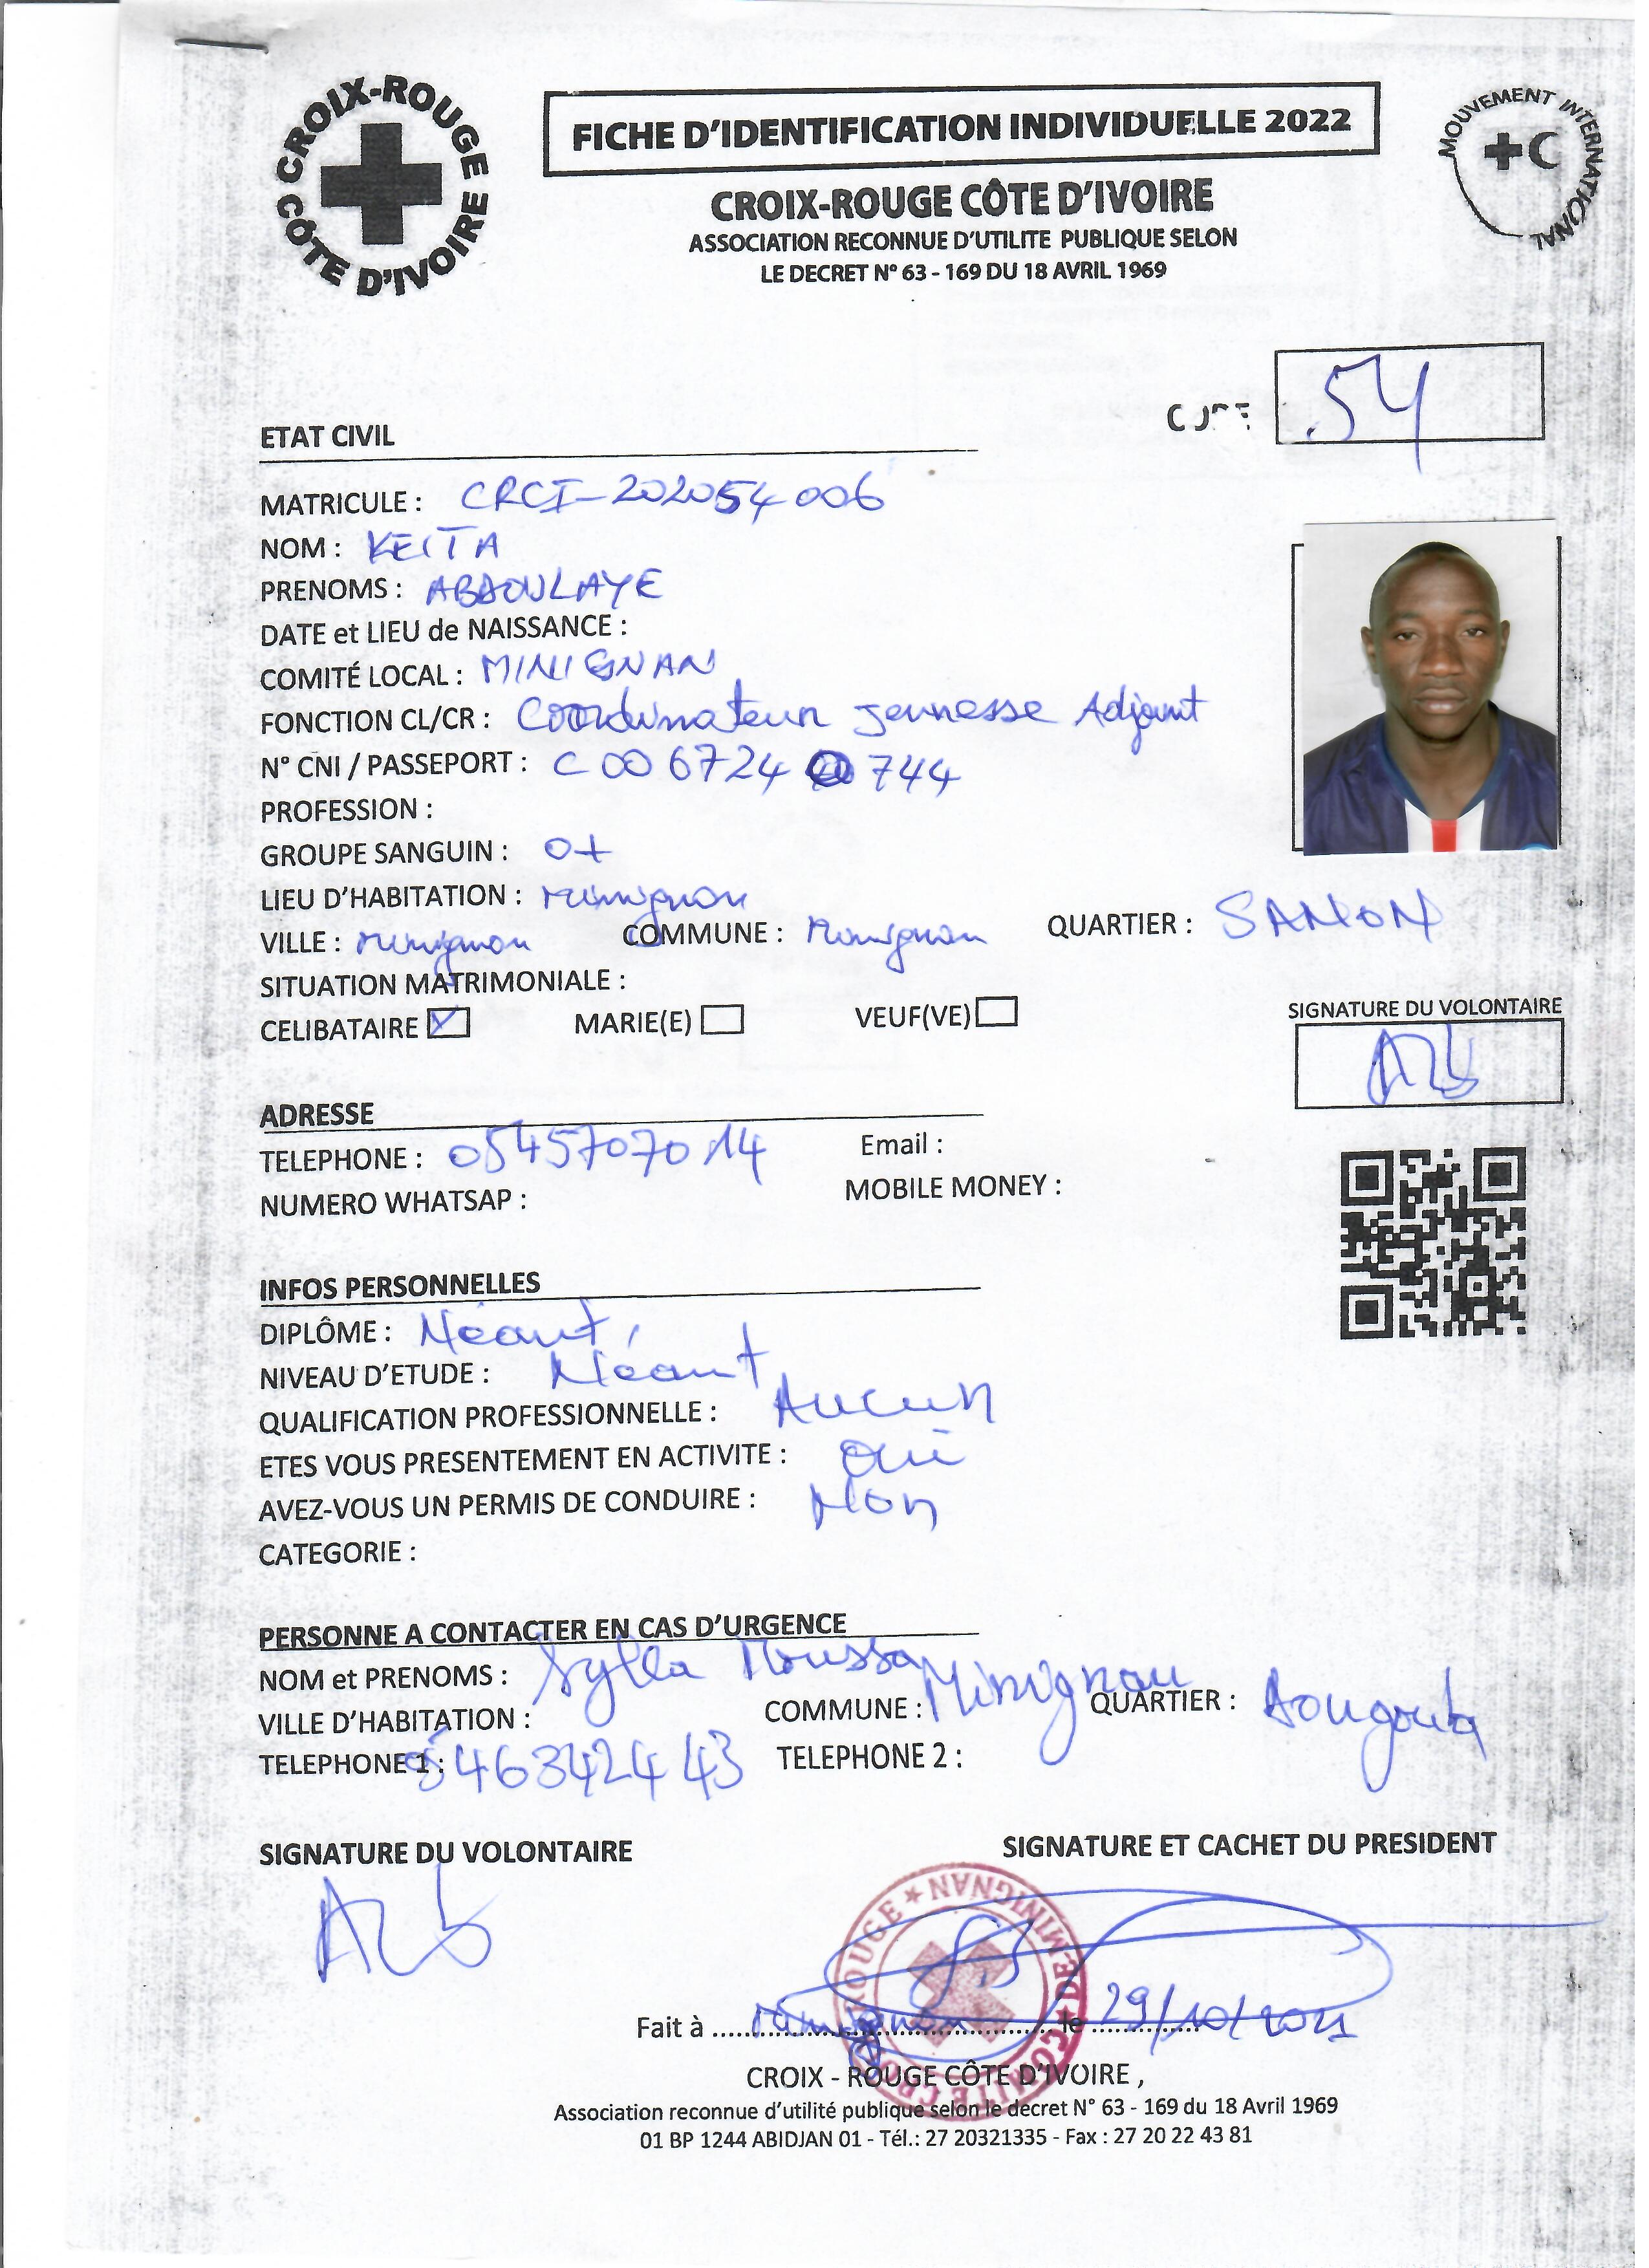 CROIX-ROUGE CÔTE D'IVOIRE
FICHE D'IDENTIFICATION INDIVIDUELLE 2022
MOUVEMENT INTERNATIONAL
CROIX-ROUGE CÔTE D'IVOIRE
ASSOCIATION RECONNUE D'UTILITE PUBLIQUE SELON
LE DECRET N° 63 - 169 DU 18 AVRIL 1969
CODE 54
ETAT CIVIL
MATRICULE : CRCI-202054006
NOM : KEITA
PRENOMS : ABDOULAYE
DATE et LIEU de NAISSANCE :
COMITÉ LOCAL : MINIGNAN
FONCTION CL/CR : Coordinateur jeunesse Adjoint
N° CNI / PASSEPORT : C 00 6724 0 744
PROFESSION :
GROUPE SANGUIN : O+
LIEU D'HABITATION : Minignan
VILLE : Minignan COMMUNE : Minignan QUARTIER : SANON
SITUATION MATRIMONIALE :
CELIBATAIRE MARIE(E) VEUF(VE)
SIGNATURE DU VOLONTAIRE
ADRESSE
TELEPHONE : 0545707014 Email :
NUMERO WHATSAP : MOBILE MONEY :
INFOS PERSONNELLES
DIPLÔME : Néant,
NIVEAU D'ETUDE : Néant
QUALIFICATION PROFESSIONNELLE : Aucun
ETES VOUS PRESENTEMENT EN ACTIVITE : Oui
AVEZ-VOUS UN PERMIS DE CONDUIRE : Non
CATEGORIE :
PERSONNE A CONTACTER EN CAS D'URGENCE
NOM et PRENOMS : Sylla Moussa
VILLE D'HABITATION : COMMUNE : Minignan QUARTIER :
TELEPHONE 1 : 0546342443 TELEPHONE 2 :
SIGNATURE DU VOLONTAIRE SIGNATURE ET CACHET DU PRESIDENT
COMITE CROIX ROUGE ★ DE MINIGNAN ★
Fait à Minignan le 29/10/2021
CROIX - ROUGE CÔTE D'IVOIRE ,
Association reconnue d'utilité publique selon le decret N° 63 - 169 du 18 Avril 1969
01 BP 1244 ABIDJAN 01 - Tél.: 27 20321335 - Fax : 27 20 22 43 81